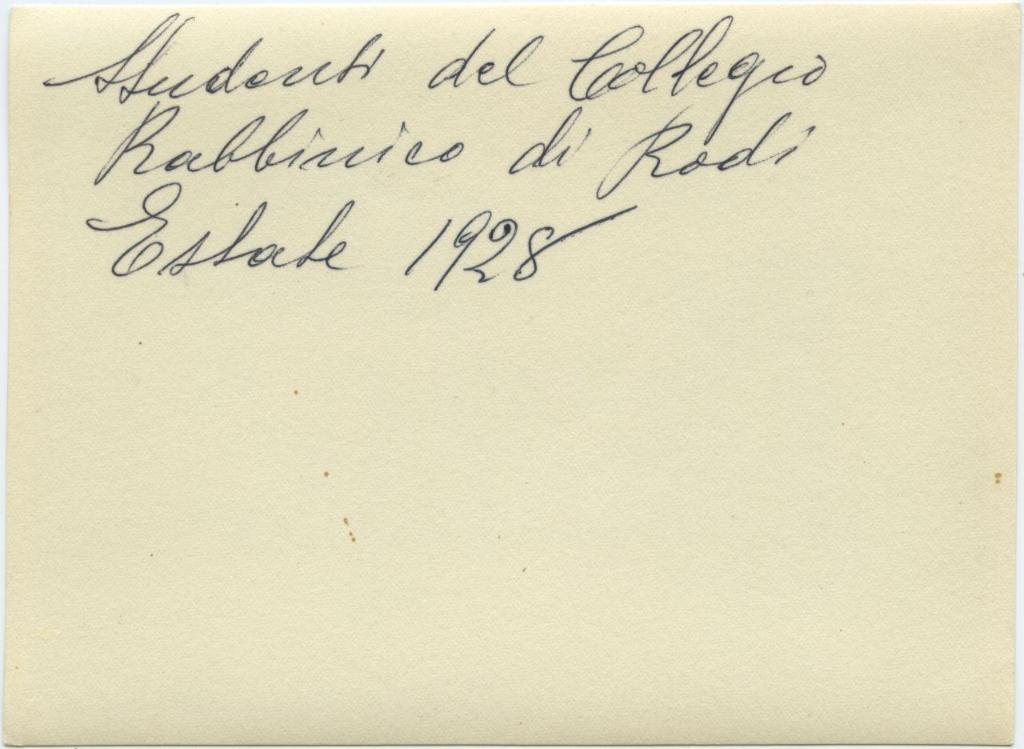 Studenti del Collegio
Rabbinico di Rodi
Estate 1928